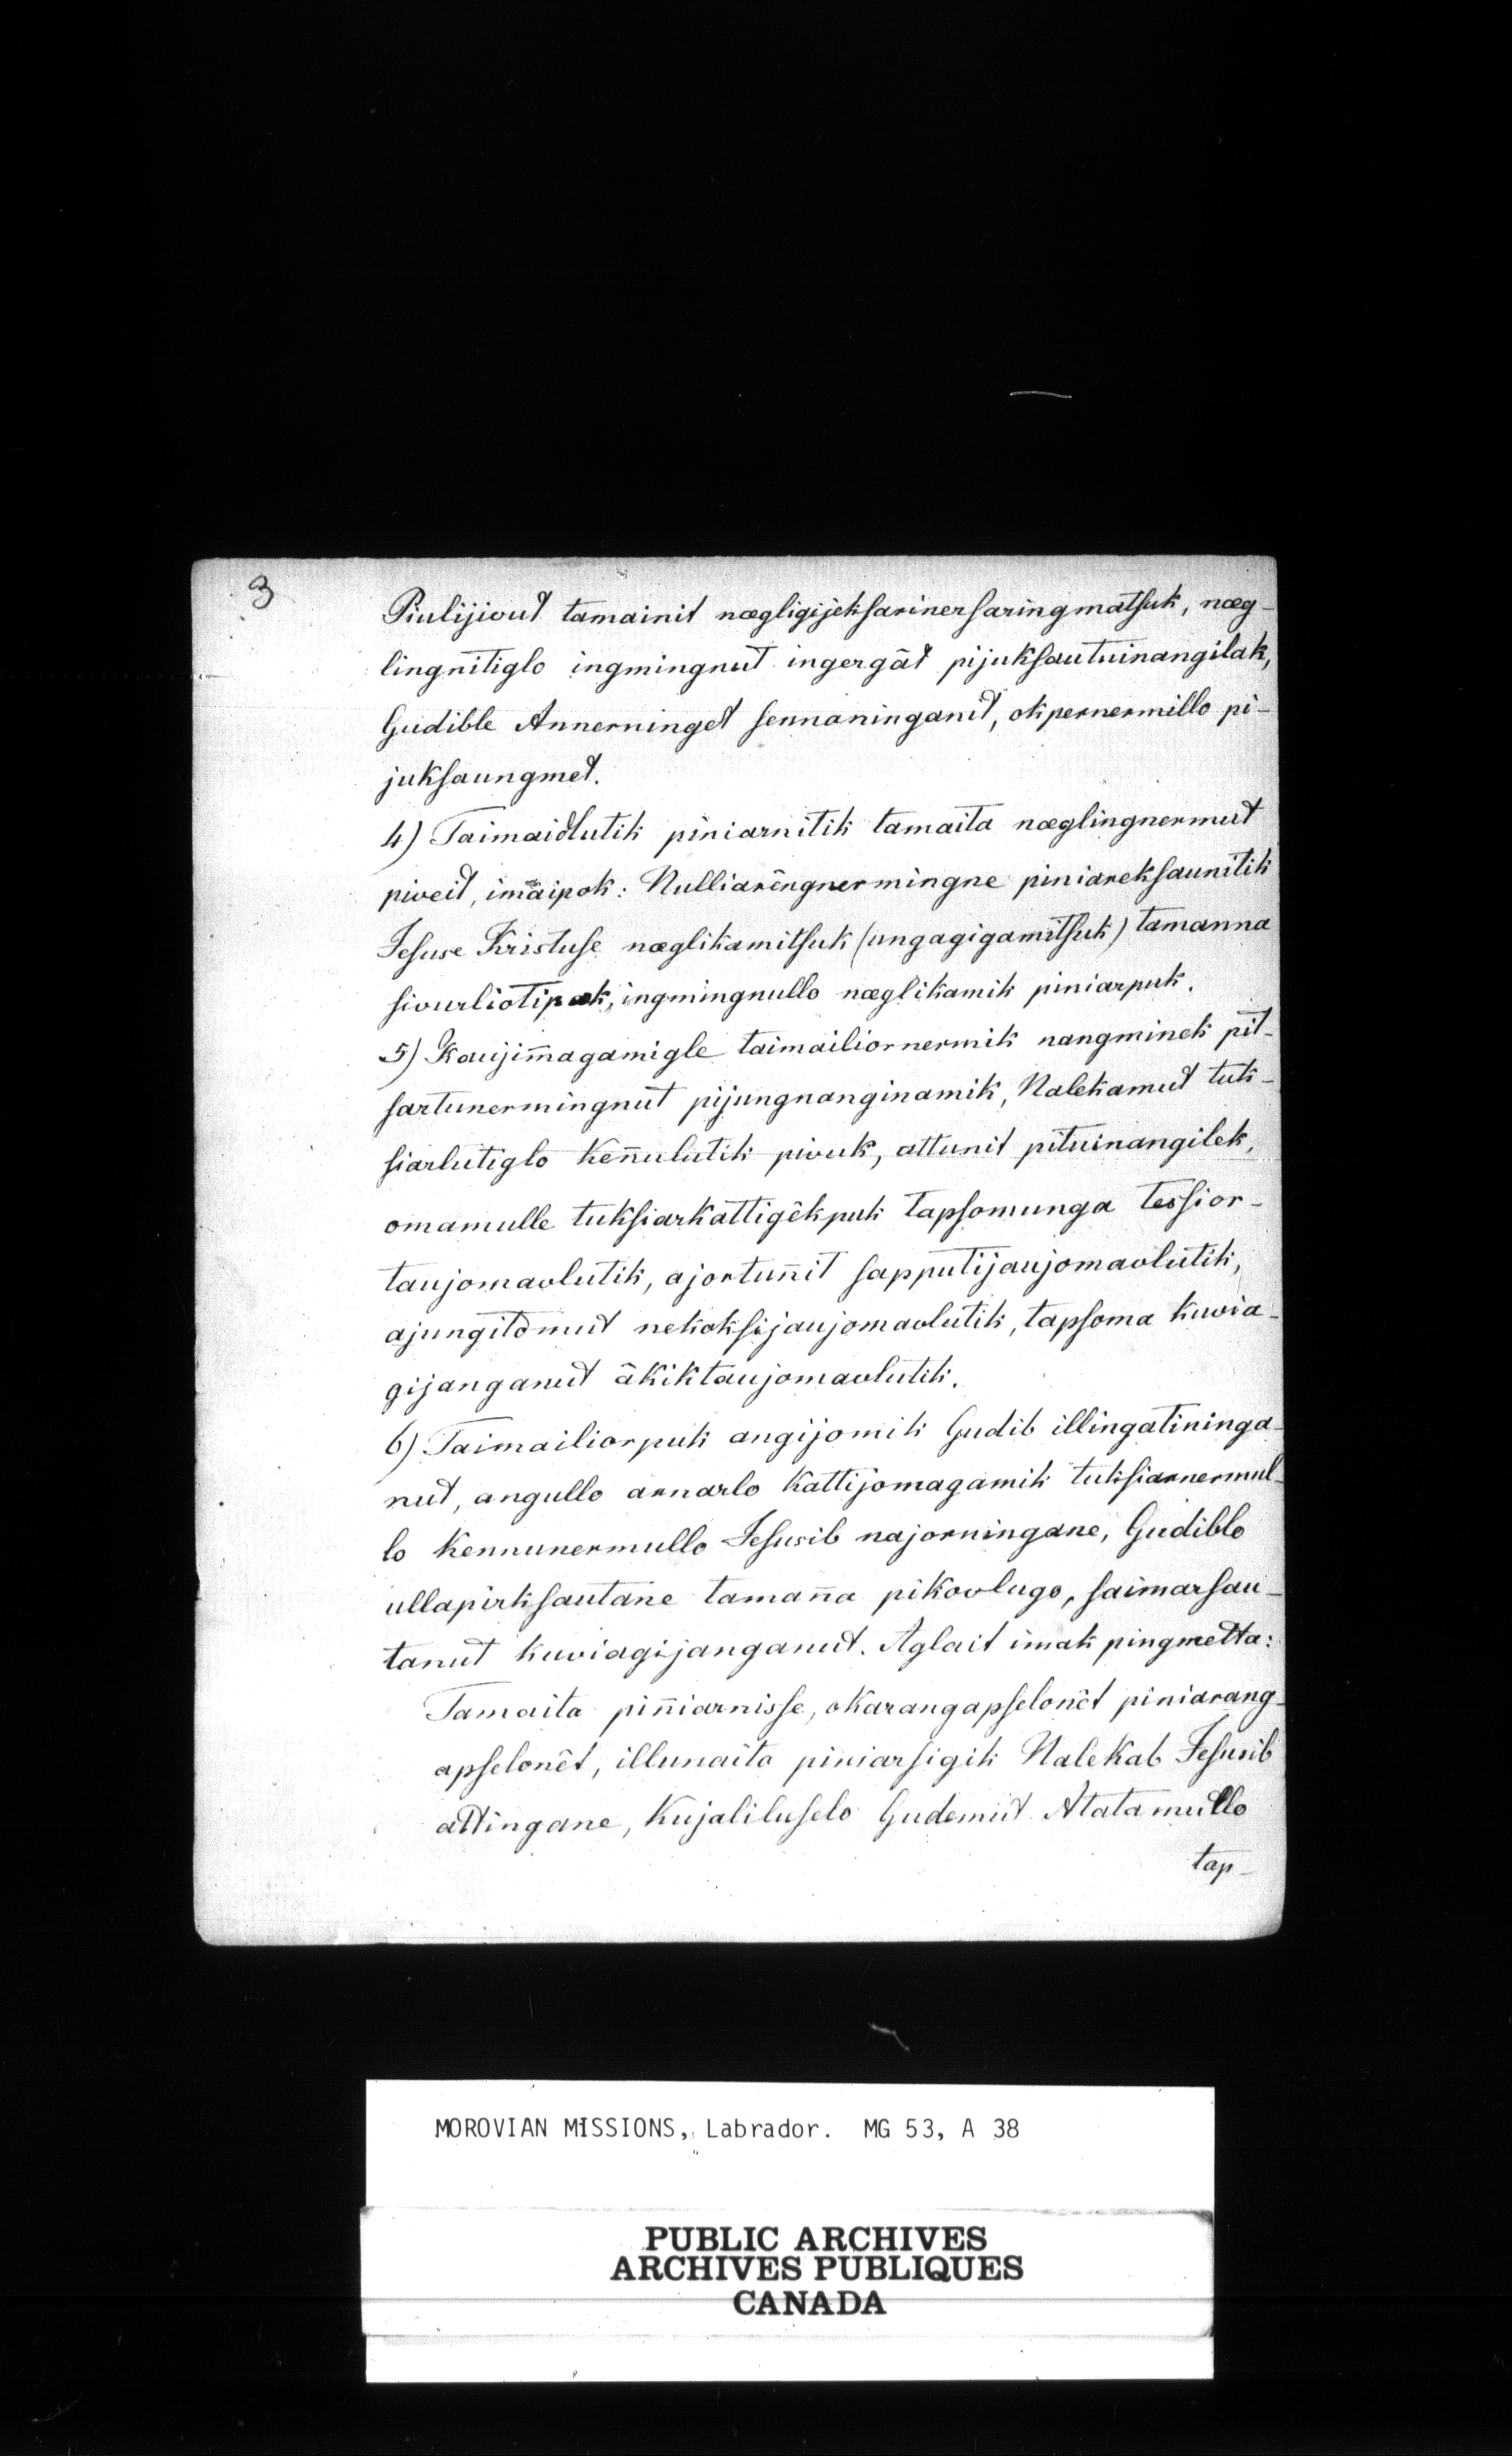 3
Piulijivut tamainit nægligijeksarinersaringmatsuk, næg-
lingnītiglo ingmingnut ingergāt pijuksautuinangilak,
Gudible Annerninget sennaninganit, okpernermillo pi-
juksaungmet.
4) Taimaidlutik piniarnitik tamaita næglingnermut
piveit, imäipok: Nulliarêngnermingne piniareksaunitik
Jesuse Kristuse næglikamitsuk (ungagigamitsuk) tamanna
sivurliotipak, ingmingnullo næglikamik piniarpuk.
5) Kaujim̄agamigle taimailiornermik nangminek pit-
sartunermingnut pijungnanginamik, Nalekamut tuk-
siarlutiglo Ken̄ulutik pivuk, attunit pituinangilek,
omamulle tuksiarkattigêkpuk tapsomunga tessior-
taujomavlutik, ajortun̄it sapputijaujomavlutik,
ajungitomut nekoksijaujomavlutik, tapsoma kuvia-
gijanganut âkiktaujomavlutik.
6) Taimailiorpuk angijomik Gudib illingatininga-
nut, angullo arnarlo Kattijomagamik tuksiarnermul-
lo Kennunermullo Jesusib najorningane, Gudiblo
ullapirksautane taman̄a pikovlugo, saimarsau-
tanut kuviagijanganut. Aglait imak pingmetta:
Tamaita pin̄iarnisse, oKarangapselonêt piniarang-
apselonêt, illunaita piniarsigik NaleKab Jesusib
attingane, Kujaliluselo Gudemut Atatamullo
tap-
MOROVIAN MISSIONS, Labrador. MG 53, A 38
PUBLIC ARCHIVES
ARCHIVES PUBLIQUES
CANADA